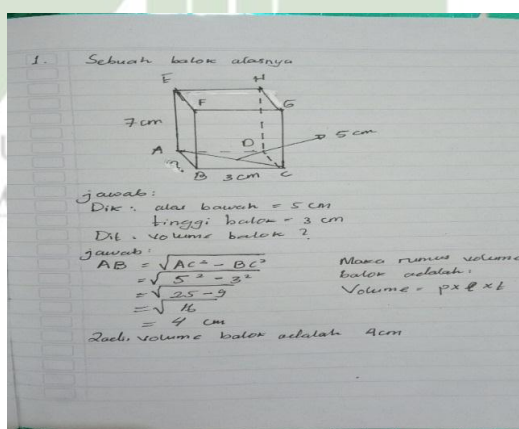 1. Sebuah balok alasnya
E H
F G
7 cm
A D 5 cm
?
B 3 cm C
jawab:
Dik: alas bawah = 5 cm
tinggi balok = 3 cm
Dit. volume balok ?
jawab:
AB = √AC² - BC²
= √5² - 3²
= √25 - 9
= √16
= 4 cm
Maka rumus volume
balok adalah:
Volume = p x l x t
Jadi, volume balok adalah 4cm